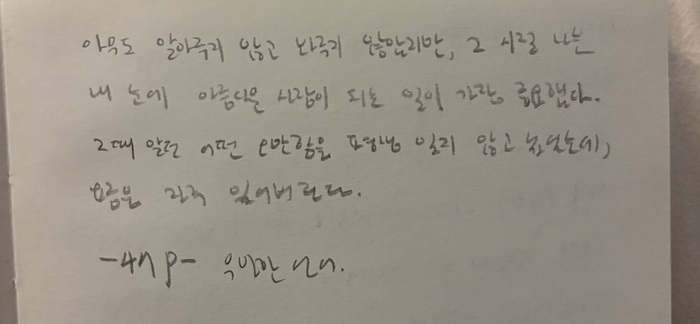 아무도 알아주지 않고 봐주지 않았지만, 그 시절 나는
내 눈에 아름다운 사람이 되는 일이 가장 중요했다.
그때 알던 어떤 오만함을 평생 잊지 않고 싶었는데,
요즘은 자주 잊어버린다.
-47p- 유일한